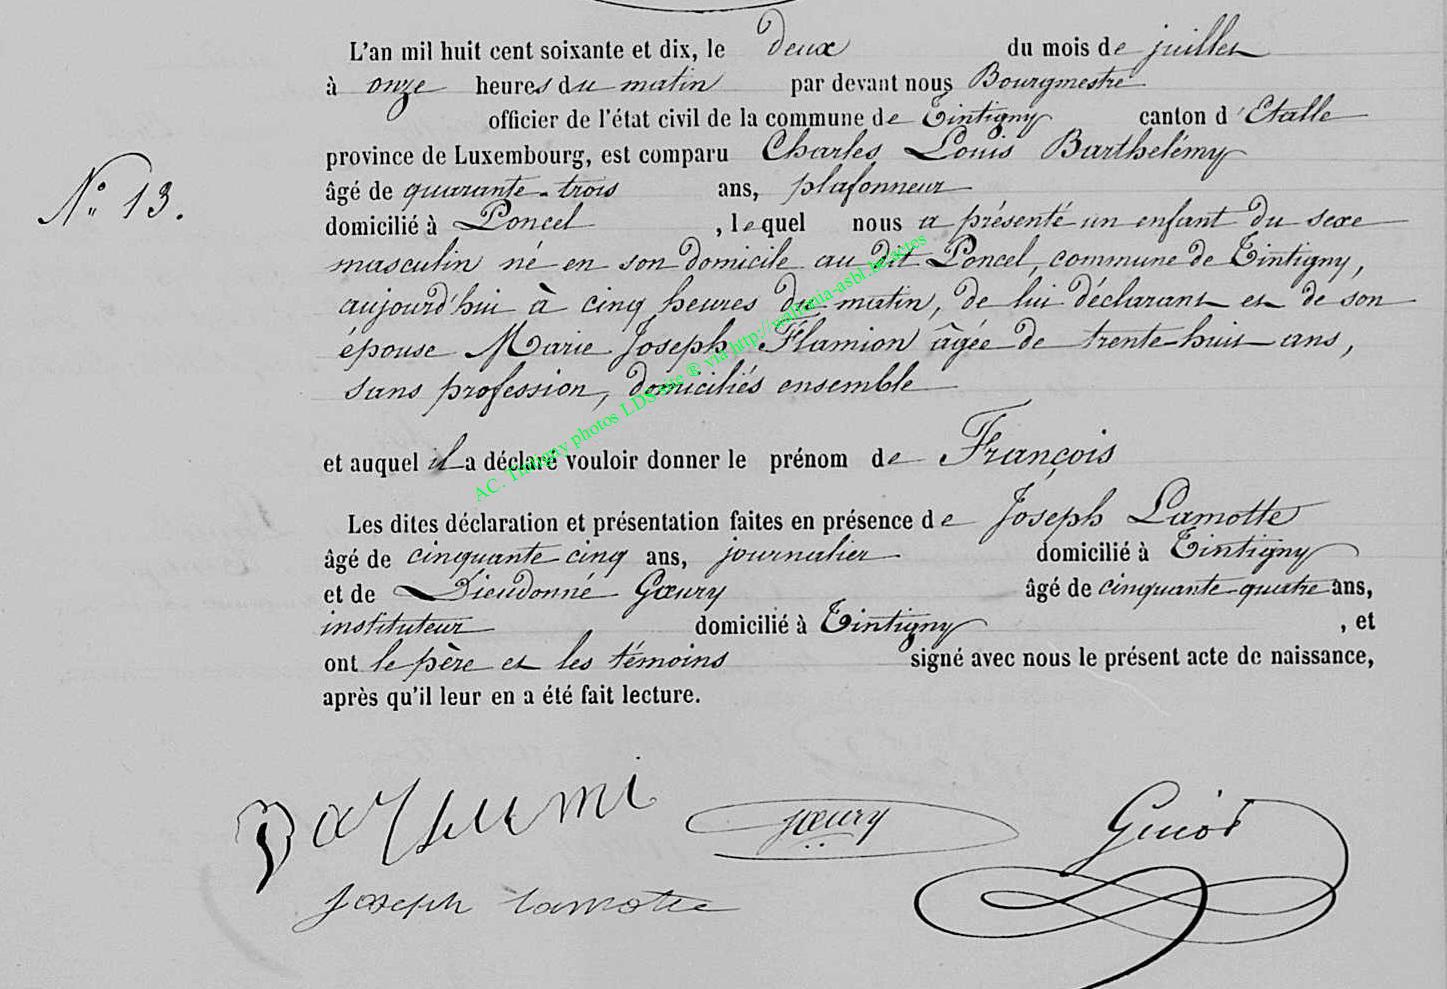 L'an mil huit cent soixante et dix, le deux du mois de juillet
à onze heures du matin par devant nous Bourgmestre
officier de l'état civil de la commune de Tintigny canton d'Etalle
province de Luxembourg, est comparu Charles Louis Barthelémy
N° 13.
âgé de quarante-trois ans, plafonneur
domicilié à Poncel, lequel nous a présenté un enfant du sexe
masculin né en son domicile au dit Poncel, commune de Tintigny,
aujourd'hui à cinq heures du matin, de lui déclarant et de son
épouse Marie Joseph Flamion âgée de trente-huit ans,
sans profession, domiciliés ensemble
AC. Tintigny photos LDS ® via http://wallonia-asbl.be/actes
et auquel il a déclaré vouloir donner le prénom de François
Les dites déclaration et présentation faites en présence de Joseph Lamotte
âgé de cinquante cinq ans, journalier domicilié à Tintigny
et de Dieudonné Gœury âgé de cinquante-quatre ans,
instituteur domicilié à Tintigny, et
ont le père et les témoins signé avec nous le présent acte de naissance,
après qu'il leur en a été fait lecture.
Gœury
joseph lamotte